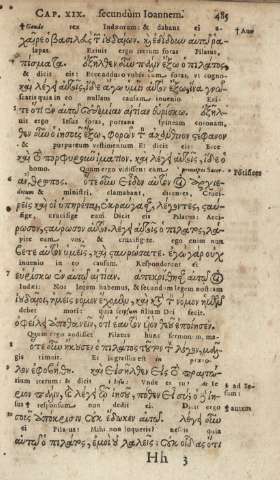 CAP. XIX. secundùm Ioannem. 485
† Gaude rex Iudæorum: & dabant ei a-
χαῖρε ὁ βασιλεὺς τῶν ἰουδαίων. καὶ ἐδίδουν αὐτῷ ῥα-
lapas. Exiuit ergo iterum foras Pilatus
πίσματα. ἐξῆλθεν οὖν πάλιν ἔξω ὁ πιλάτος
& dicit eis: Ecce adduco vobis eum foras, vt cogno-
καὶ λέγει αὐτοῖς, ἴδε ἄγω ὑμῖν αὐτὸν ἔξω, ἵνα γνῶ-
scatis quia in eo nullam inuenio causam.
τε ὅτι ἐν αὐτῷ οὐδεμίαν αἰτίαν εὑρίσκω. ἐξῆλ-
uit ergo Iesus foras, portans coronam,
θεν οὖν ὁ ἰησοῦς ἔξω, φορῶν τὸν ἀκάνθινον στέφανον
& purpureum vestimentum Et dicit eis: Ecce
καὶ τὸ πορφυροῦν ἱμάτιον. καὶ λέγει αὐτοῖς, ἴδε ὁ
homo. Quum ergo vidissent eum
ἄνθρωπος. ὅτε οὖν εἶδον αὐτὸν
& ministri, clamabant,
ρεῖς καὶ οἱ ὑπηρέται, ἐκραύγασαν, λέγοντες, σταύ-
fige, crucifige eum Dicit eis Pilatus: Acci-
ρωσον, σταύρωσον αὐτόν. λέγει αὐτοῖς ὁ πιλάτος, λά-
pite eum vos, & crucifigite ego enim non
βετε αὐτὸν ὑμεῖς, καὶ σταυρώσατε. ἐγὼ γὰρ οὐχ
inuenio in eo causam. Responderunt ei
εὑρίσκω ἐν αὐτῷ αἰτίαν. ἀπεκρίθησαν αὐτῷ οἱ
Iudæi: Nos legem habemus, & secundum legem nostram
ἰουδαῖοι, ἡμεῖς νόμον ἔχομεν, καὶ κατὰ τὸν νόμον ἡμῶν
debet mori: quia filium Dei fecit.
ὀφείλει ἀποθανεῖν, ὅτι ἑαυτὸν υἱὸν θεοῦ ἐποίησεν.
Quum ergo audisset Pilatus hunc sermonem, ma-
ὅτε οὖν ἤκουσεν ὁ πιλάτος τοῦτον τὸν λόγον, μᾶλ-
gis timuit. Et ingressus est in
λον ἐφοβήθη. καὶ εἰσῆλθεν εἰς τὸ πραιτώ-
riam iterum: & dicit Vnde es tu?
ριον πάλιν, καὶ λέγει τῷ ἰησοῦ, πόθεν εἶ σύ; ὁ ἰη-
sus responsum non dedit ei. Dicit ergo
σοῦς ἀπόκρισιν οὐκ ἔδωκεν αὐτῷ. λέγει οὖν
ei Pilatus: Mihi non loqueris? nescis quia
αὐτῷ ὁ πιλάτος, ἐμοὶ οὐ λαλεῖς; οὐκ οἶδας ὅτι
Hh 3